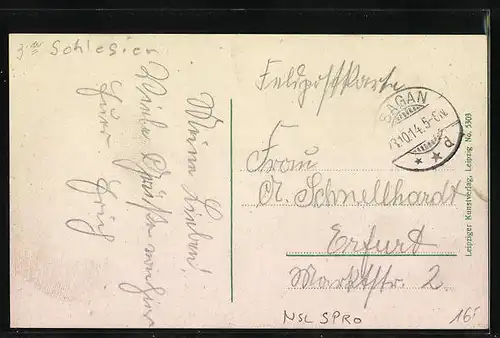 Schlesien
Meine Lieben!
Viele Grüße
Euer
Feldpostkarte
SAGAN
.10.14.5-6N.
d
Frau
A. Schnellhardt
Erfurt
Marktstr. 2
Leipziger Kunstverlag, Leipzig No. 3303
NSL SPRO
16,-